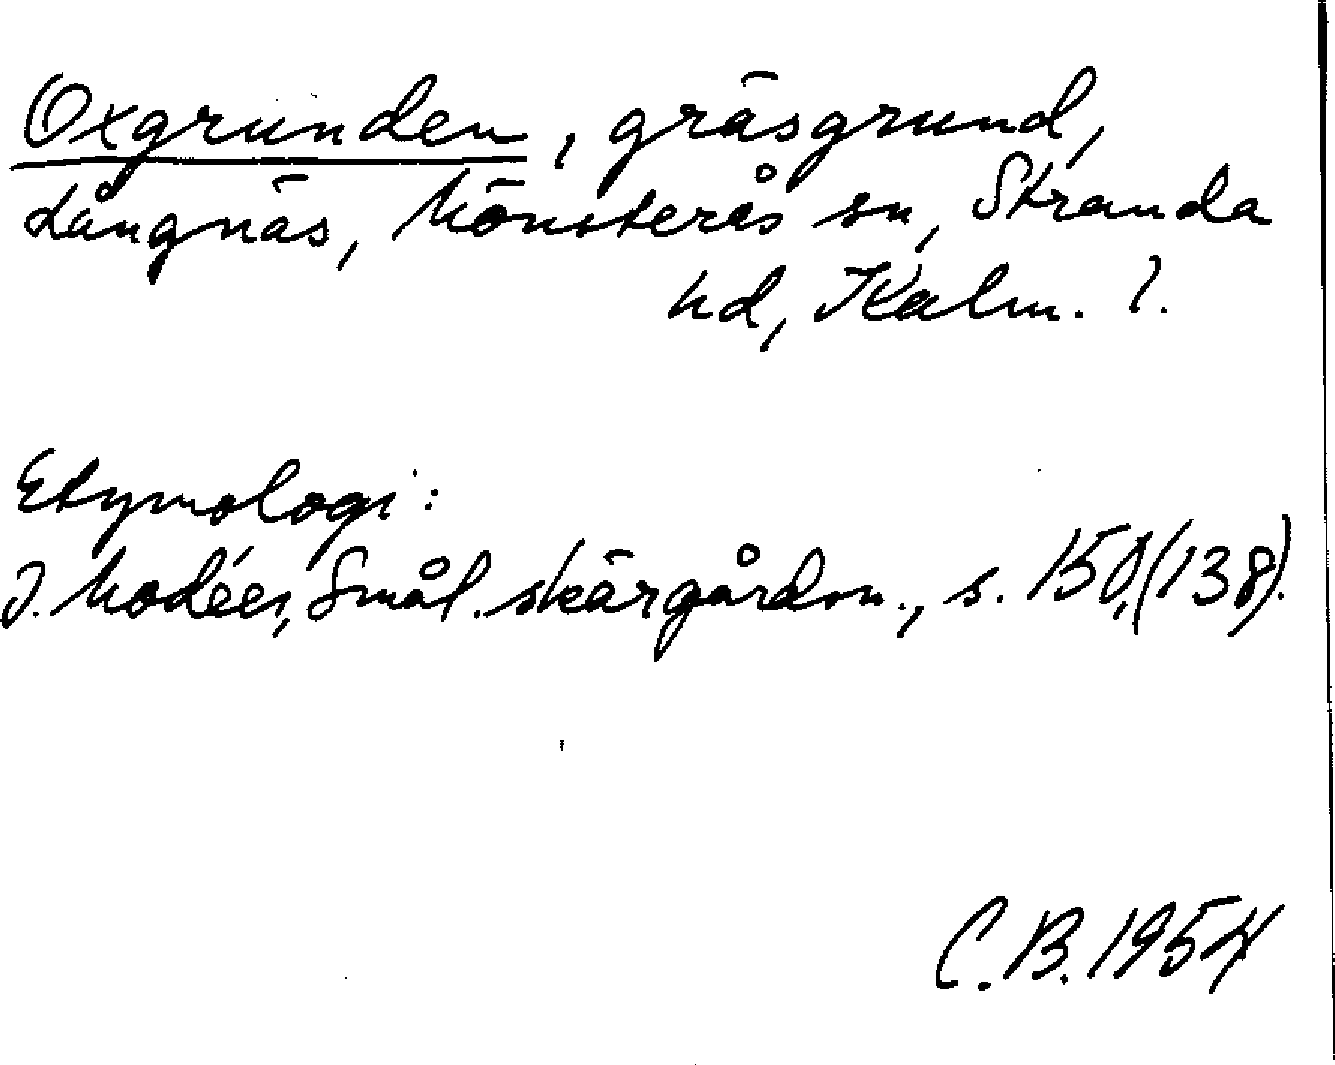 Oxgrunden, gräsgrund,
Långnäs, Mönsterås sn, Stranda
hd, Kalm. l.
Etymologi:
J. Modéer, Smål. skärgårdsn., s. 150, (138).
C. B. 1954